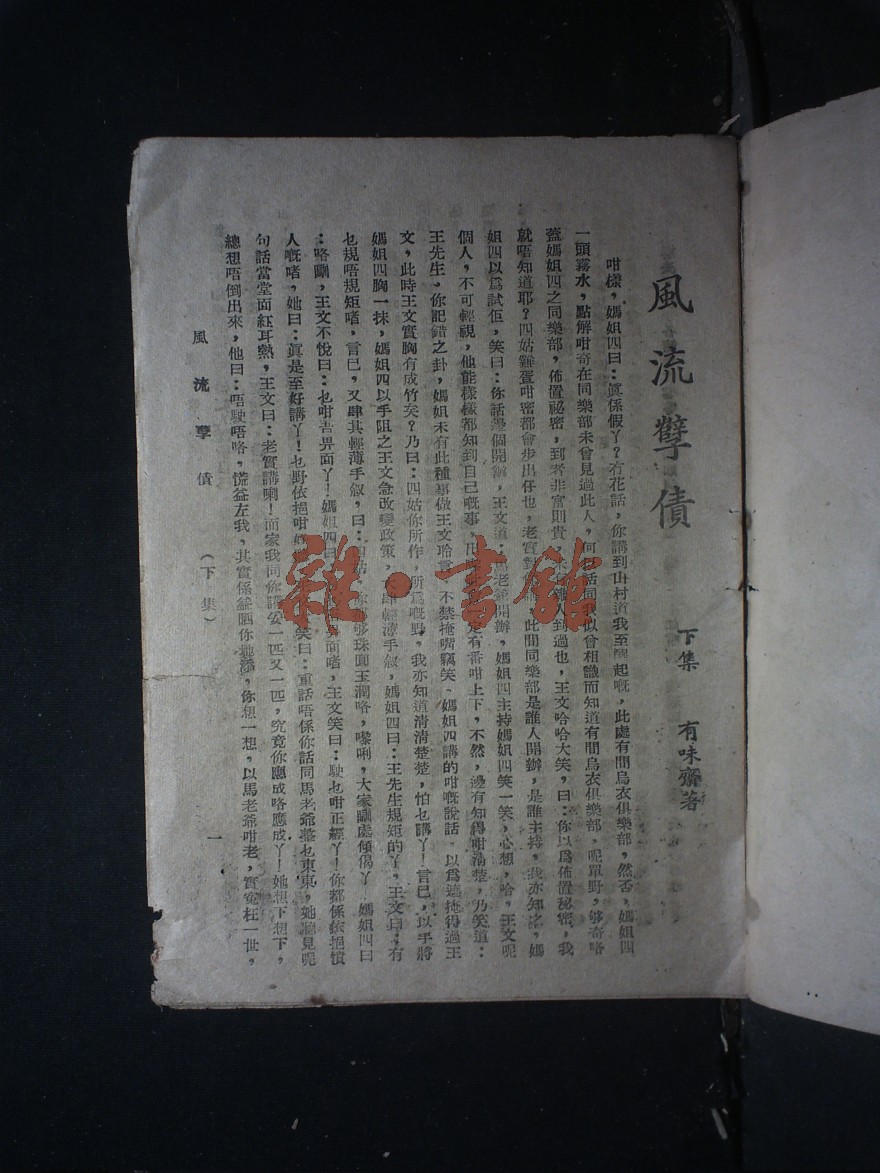 風流孽債
下集　有味齋著
咁樣，媽姐四曰：眞係假丫？冇花話，你講到山村道我至醒起嘅，此處有間烏衣俱樂部，然否，媽姐四
一頭霧水，點解咁奇在同樂部未曾見過此人，何話同我似曾相識而知道有間烏衣俱樂部，呢單野，够奇咯
蓋媽姐四之同樂部，佈置祕密，到者非富則貴，人到過也，王文哈哈大笑，曰：你以爲佈置秘密，我
就唔知道耶？四姑雞蛋咁密都會步出仔也，老實對，此間同樂部是誰人開辦，是誰主持，我亦知之，媽
姐四以爲試佢，笑曰：你話邊個開辦，王文道：老爺開辦，媽姐四主持媽姐四笑一笑，心想，哈，王文呢
個人，不可輕視，他能樣樣都知到自己嘅事，定有番咁上下，不然，邊有知得咁清楚，乃笑道：
王先生，你記錯之卦，媽姐未有此種事做王文聆，不禁掩嘴竊笑、媽姐四講的咁嘅說話，以爲遮掩得過王
文，此時王文實胸有成竹矣？乃曰：四姑你所作，所爲嘅野，我亦知道清清楚楚，怕乜講丫！言已，以手將
媽姐四胸一抹，媽姐四以手阻之王文急改變政策，肆輕薄手叙，媽姐四曰：王先生規矩的丫，王文曰：有
乜規唔規矩啫，言已，又肆其輕薄手叙，曰：四姑，你够珠圓玉潤咯，嚟唎，大家瞓處傾偈丫　媽姐四曰
：咯瞓，王文不悅曰：乜咁吾畀面丫！媽姐四曰：面啫，王文笑曰：駛乜咁正經丫！你都係依挹慣
人嘅啫，她曰：眞是至好講丫！乜野依挹咁，笑曰：重話唔係你話同馬老爺整乜東東，她聽見呢
句話當堂面紅耳熱，王文曰：老實講喇！而家我同你講妥一匹又一匹，究竟你應成咯應成丫！她想下想下，
總想唔倒出來，他曰：唔駛唔咯，慌益左我，其實係益晒你她，你想一想，以馬老爺咁老，實寃枉一世，
風流孽債　（下集）　一
雜·書館